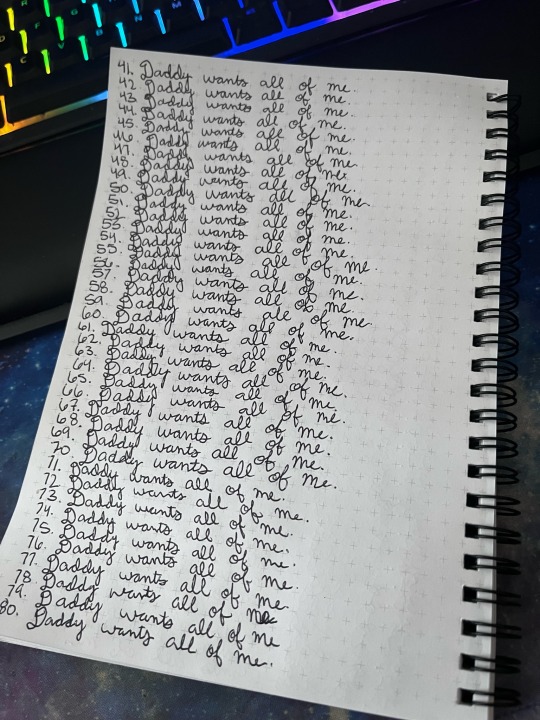 41. Daddy wants all of me.
42 Daddy wants all of me.
43 Daddy wants all of me.
44. Daddy wants all of me.
45. Daddy wants all of me.
46. Daddy wants all of me.
47. Daddy wants all of me.
48. Daddy wants all of me.
49. Daddy wants all of me.
50. Daddy wants all of me.
51. Daddy wants all of me.
52. Daddy wants all of me.
53. Daddy wants all of me.
54. Daddy wants all of me.
55. Daddy wants all of me.
56. Daddy wants all of me.
57. Daddy wants all of me.
58. Daddy wants all of me.
59. Daddy wants all of me.
60. Daddy wants all of me.
61. Daddy wants all of me.
62. Daddy wants all of me.
63. Daddy wants all of me.
64. Daddy wants all of me.
65. Daddy wants all of me.
66. Daddy wants all of me.
67. Daddy wants all of me.
68. Daddy wants all of me.
69. Daddy wants all of me.
70. Daddy wants all of me.
71. Daddy wants all of me.
72 Daddy wants all of me.
73. Daddy wants all of me.
74. Daddy wants all of me.
75. Daddy wants all of me.
76. Daddy wants all of me.
77. Daddy wants all of me.
78. Daddy wants all of me.
79. Daddy wants all of me
80. Daddy wants all of me.